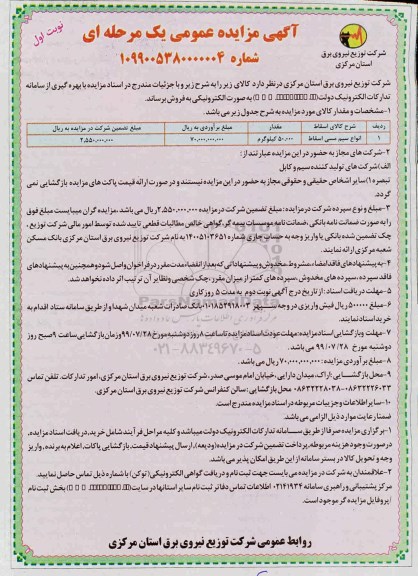 نوبت اول
آگهی مزایده عمومی یک مرحله ای
شماره ۱۰۹۹۰۰۵۳۸۰۰۰۰۰۰۴
شرکت توزیع نیروی برق
استان مرکزی
شرکت توزیع نیروی برق استان مرکزی درنظر دارد کالای زیر را به شرح زیر و با جزئیات مندرج در اسناد مزایده با بهره گیری از سامانه
تدارکات الکترونیک دولت به صورت الکترونیکی به فروش برساند.
۱-مشخصات و مقدار کالای مورد مزایده به شرح جدول زیر می باشد.
ردیف شرح کالای اسقاط مقدار مبلغ برآوردی به ریال مبلغ تضمین شرکت در مزایده به ریال
۱ انواع سیم مسی اسقاط ۵۰.۰۰۰ کیلوگرم ۷۰،۰۰۰،۰۰۰،۰۰۰ ۲،۵۵۰،۰۰۰،۰۰۰
۲-شرکت های مجاز به حضور در این مزایده عبارتند از:
الف) شرکت های تولید کننده سیم و کابل
تبصره ۱) سایر اشخاص حقیقی و حقوقی مجاز به حضور در این مزایده نیستند و در صورت ارائه قیمت پاکت های مزایده بازگشایی نمی
گردد.
۳-مبلغ و نوع سپرده شرکت در مزایده: مبلغ تضمین شرکت در مزایده ۲،۵۵۰،۰۰۰،۰۰۰ ریال می باشد، مزایده گران میبایست مبلغ فوق
را به صورت ضمانت نامه بانکی، ضمانت نامه موسسات بیمه گر، گواهی خالص مطالبات قطعی تایید شده توسط امور مالی شرکت توزیع،
چک تضمین شده بانکی یا واریز وجه به حساب جاری شماره ۱۴۰۰۵۱۰۳۶۵۱ به نام شرکت توزیع نیروی برق استان مرکزی بانک مسکن
شعبه مرکزی ارائه نمایند.
۴-به پیشنهادهای فاقد امضاء، مشروط، مخدوش و پیشنهاداتی که بعد از انقضاء مدت مقرر در فراخوان واصل شود و همچنین به پیشنهادهای
فاقد سپرده، سپرده های مخدوش، سپرده های کمتر از میزان مقرر، چک شخصی و نظایر آن ترتیب اثر داده نخواهد شد.
۵-مهلت دریافت اسناد: از تاریخ درج آگهی نوبت دوم به مدت ۵ روز کاری
۶-مبلغ ۵۰۰۰۰۰ ریال فیش واریزی در وجه سپهر بانک صادرات شعبه میدان شهدا و از طریق سامانه ستاد اقدام به
خرید اسناد نمایند.
۷-مهلت و بازگشایی اسناد مزایده: مهلت عودت اسناد مزایده تا ساعت ۸ روز دوشنبه مورخ ۹۹/۰۷/۲۸ و زمان بازگشایی ساعت ۹ صبح روز
دوشنبه مورخ ۹۹/۰۷/۲۸ می باشد.
۸-مبلغ برآوردی مزایده: ۷۰،۰۰۰،۰۰۰،۰۰۰ ریال می باشد.
۹-محل بازگشایی: اراک، میدان دارایی، خیابان امام موسی صدر، شرکت توزیع نیروی برق استان مرکزی، امور تدارکات. تلفن تماس
محل بازگشایی: سالن کنفرانس شرکت توزیع نیروی برق استان مرکزی.
۱۰-سایر اطلاعات و جزییات مربوطه در اسناد مزایده مندرج است.
ضمنا رعایت موارد ذیل الزامی می باشد.
۱-برگزاری مزایده صرفا از طریق سامانه تدارکات الکترونیک دولت میباشد و کلیه مراحل فرآیند شامل خرید، دریافت اسناد مزایده،
در صورت وجود هزینه مربوطه، پرداخت تضمین شرکت در مزایده (ودیعه)، ارسال پیشنهاد قیمت، بازگشایی پاکات، اعلام به برنده، واریز
وجه و تحویل کالا در بستر سامانه از این طریق امکان پذیر می باشد.
۲-علاقمندان به شرکت در مزایده می بایست جهت ثبت نام و دریافت گواهی الکترونیکی (توکن) با شماره ذیل تماس حاصل نمایید.
مرکز پشتیبانی و راهبری سامانه ۰۲۱۴۱۹۳۴ اطلاعات تماس دفاتر ثبت نام سایر استانها در سایت بخش ثبت نام
/پروفایل مزایده گر موجود است.
روابط عمومی شرکت توزیع نیروی برق استان مرکزی